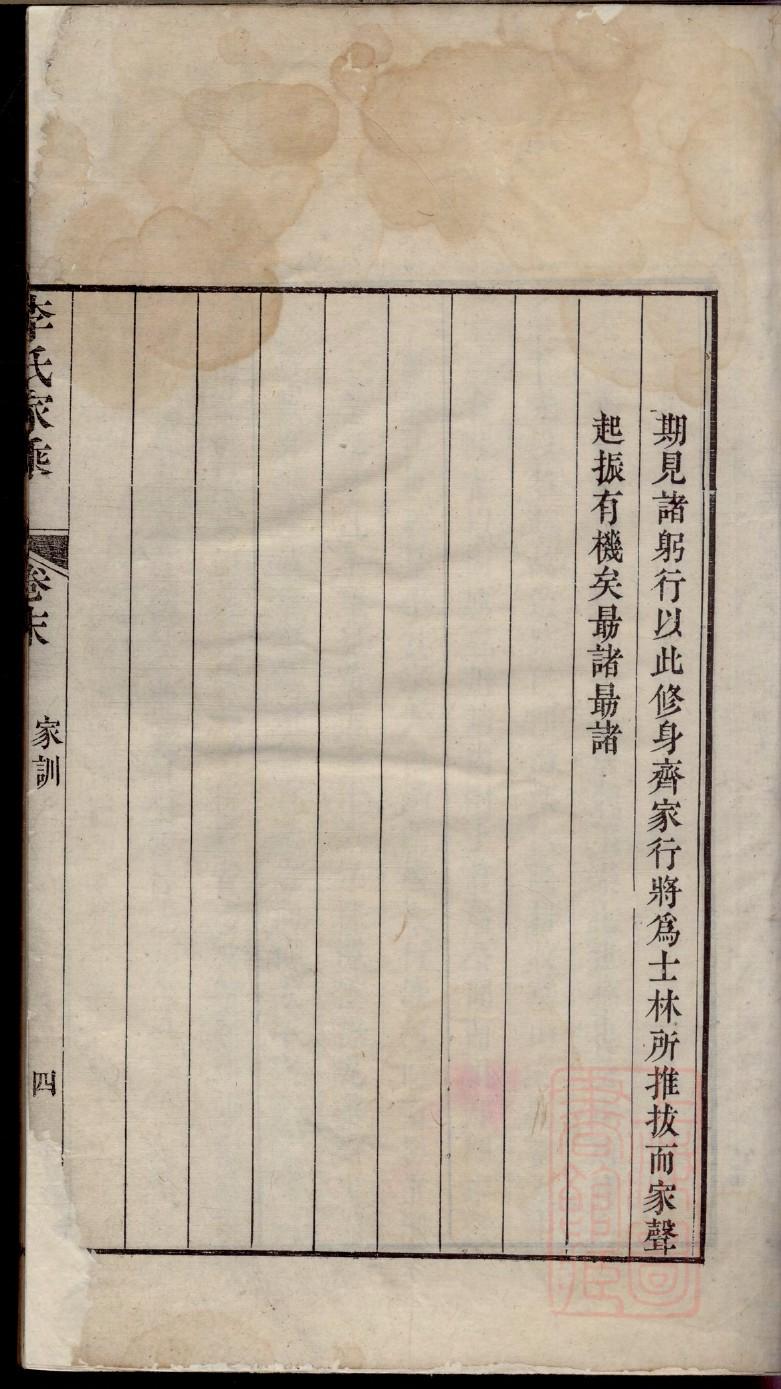 期見諸躬行以此修身齊家行將爲士林所推拔而家聲
起振有機矣最諸最諸
李氏家乘
卷末
家訓
四